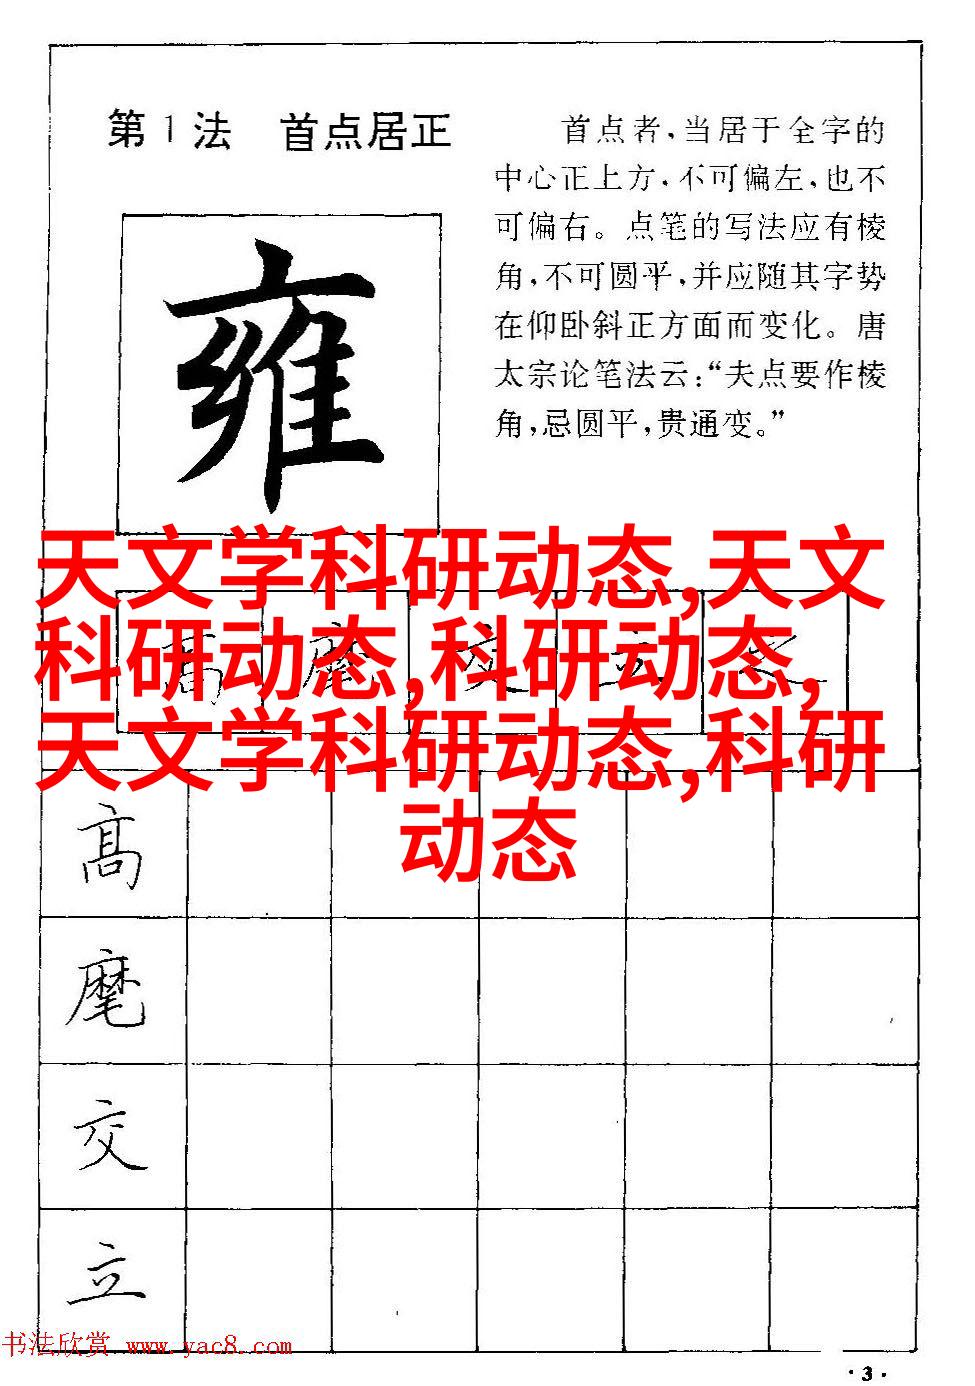 第1法 首点居正
首点者，当居于全字的
中心正上方，不可偏左，也不
可偏右。点笔的写法应有棱
角，不可圆平，并应随其字势
在仰卧斜正方面而变化。唐
太宗论笔法云：“夫点要作棱
角，忌圆平，贵通变。”
雍
天文学科研动态,天文
科研动态,科研动态,
天文学科研动态,科研
动态
高 麾 交 立 之
高
麾
交
立
书法欣赏 www.yac8.com
·3·